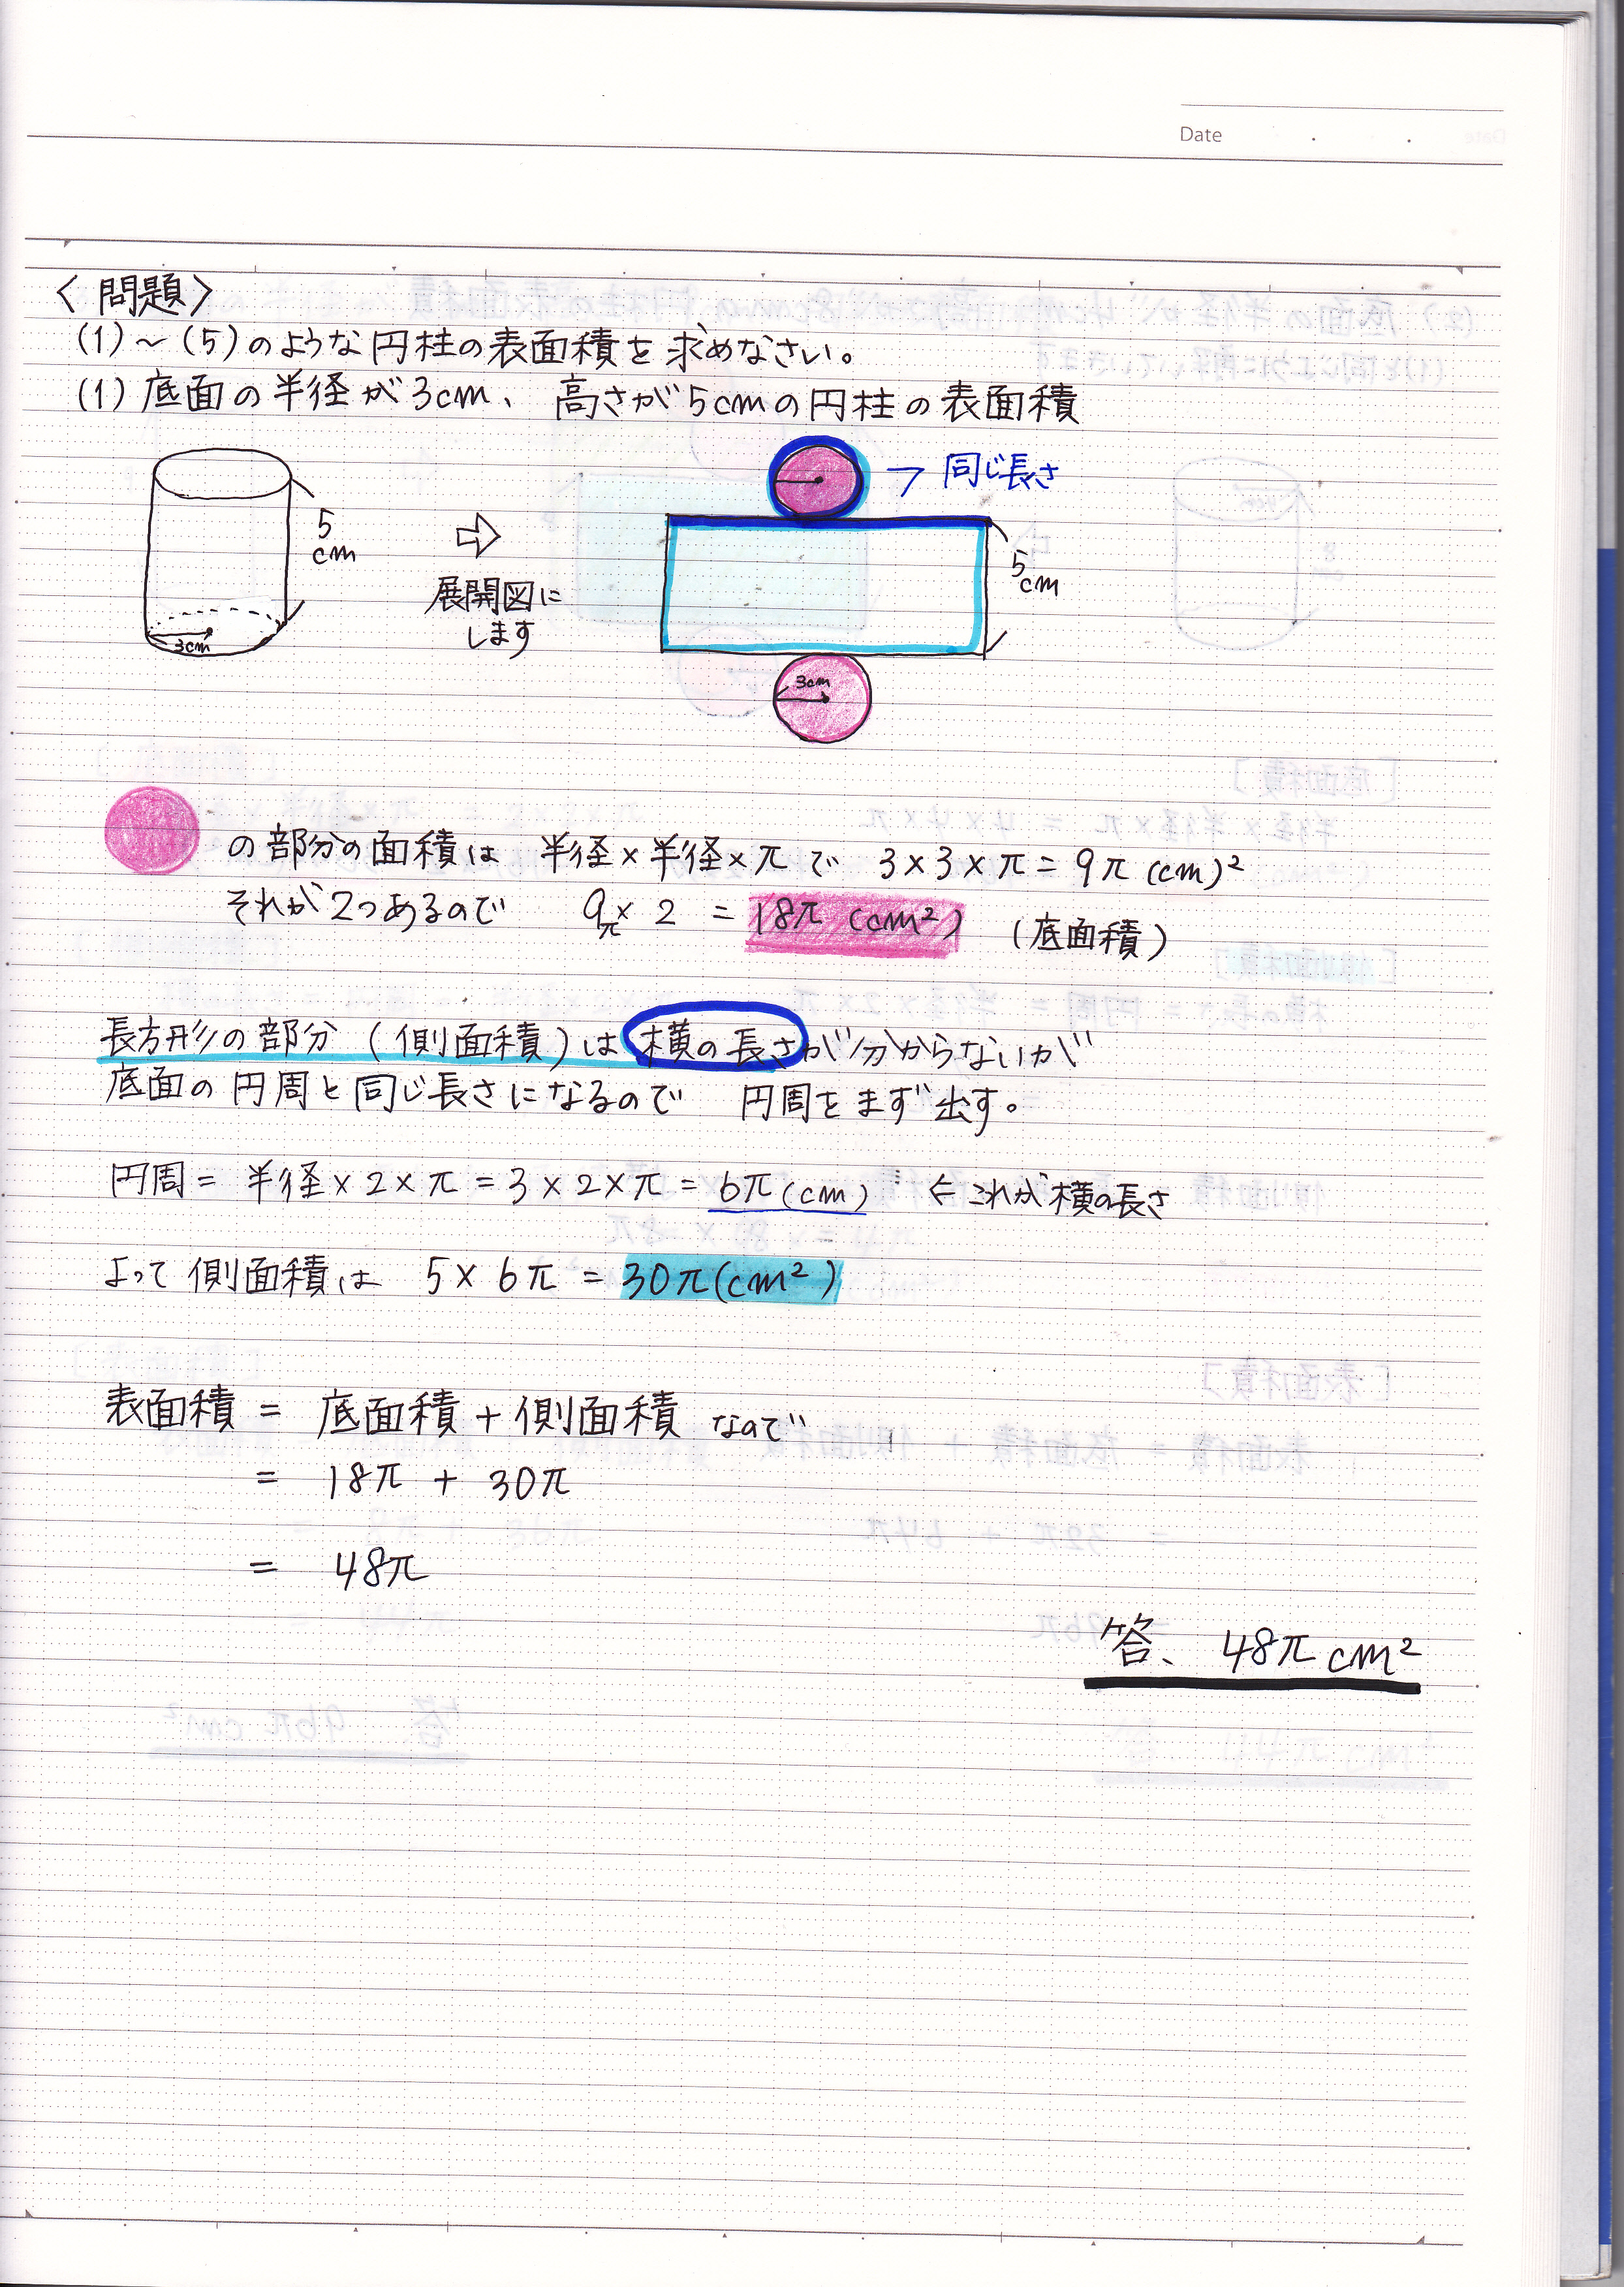 Date
〈問題〉
(1)～(5)のような円柱の表面積を求めなさい。
(1) 底面の半径が3cm、高さが5cmの円柱の表面積
同じ長さ
5
cm
3cm
展開図に
します
5
cm
3cm
の部分の面積は 半径×半径×πで 3×3×π=9π(cm)²
それが2つあるので 9π×2 = 18π(cm²) (底面積)
長方形の部分(側面積)は横の長さが分からないが
底面の円周と同じ長さになるので 円周をまず出す。
円周=半径×2×π=3×2×π=6π(cm) ⇐これが横の長さ
よって側面積は 5×6π=30π(cm²)
表面積 = 底面積+側面積 なので
= 18π + 30π
= 48π
答、48πcm²